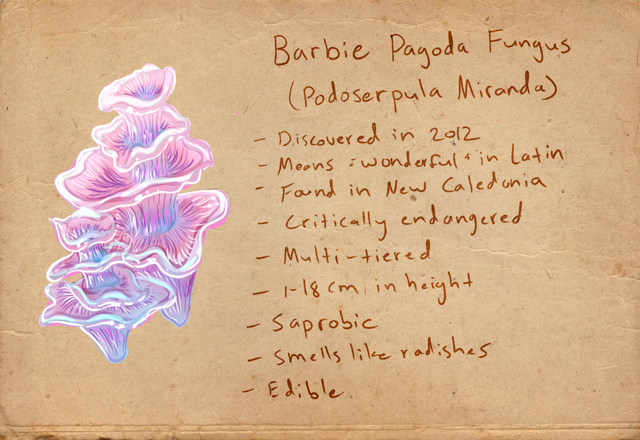 Barbie Pagoda Fungus
(Podoserpula Miranda)
- Discovered in 2012
- Means "wonderful" in Latin
- Found in New Caledonia
- Critically endangered
- Multi-tiered
- 1-18 cm in height
- Saprobic
- Smells like radishes
- Edible